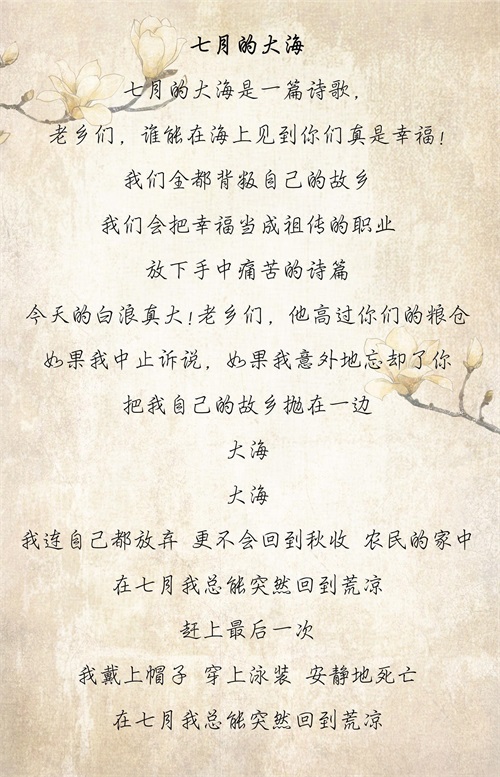 七月的大海
七月的大海是一篇诗歌，
老乡们，谁能在海上见到你们真是幸福！
我们全都背叛自己的故乡
我们会把幸福当成祖传的职业
放下手中痛苦的诗篇
今天的白浪真大！老乡们，他高过你们的粮仓
如果我中止诉说，如果我意外地忘却了你
把我自己的故乡抛在一边
大海
大海
我连自己都放弃 更不会回到秋收 农民的家中
在七月我总能突然回到荒凉
赶上最后一次
我戴上帽子 穿上泳装 安静地死亡
在七月我总能突然回到荒凉